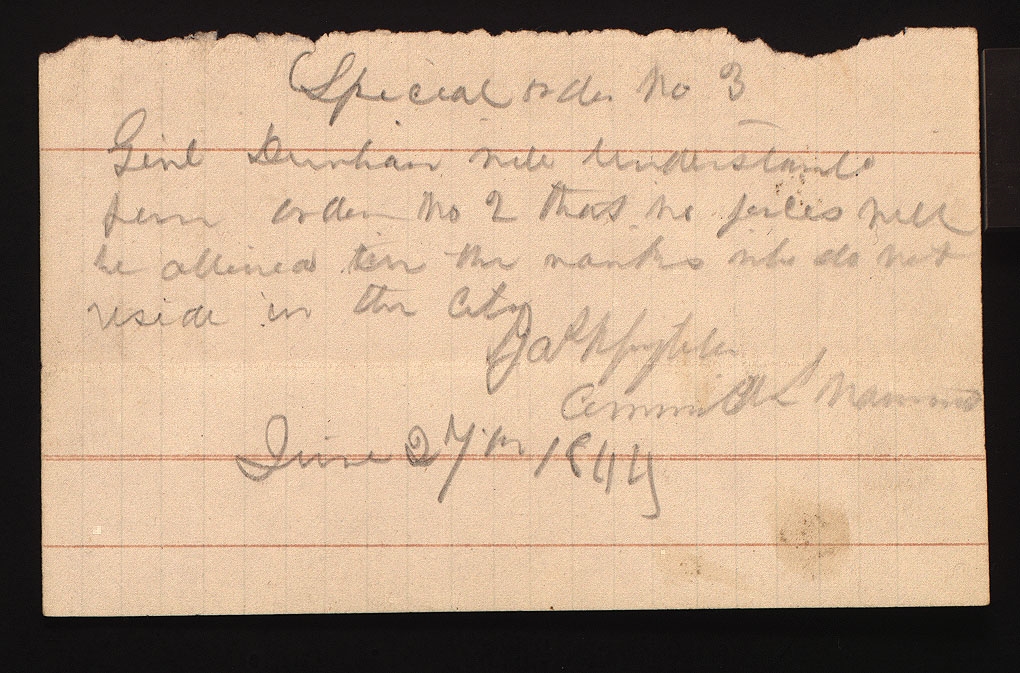 Special order No 3
Genl Dunham will understand
from order No 2 that no forces will
be allowed in the ranks who do not
reside in the City
June 27th 1844